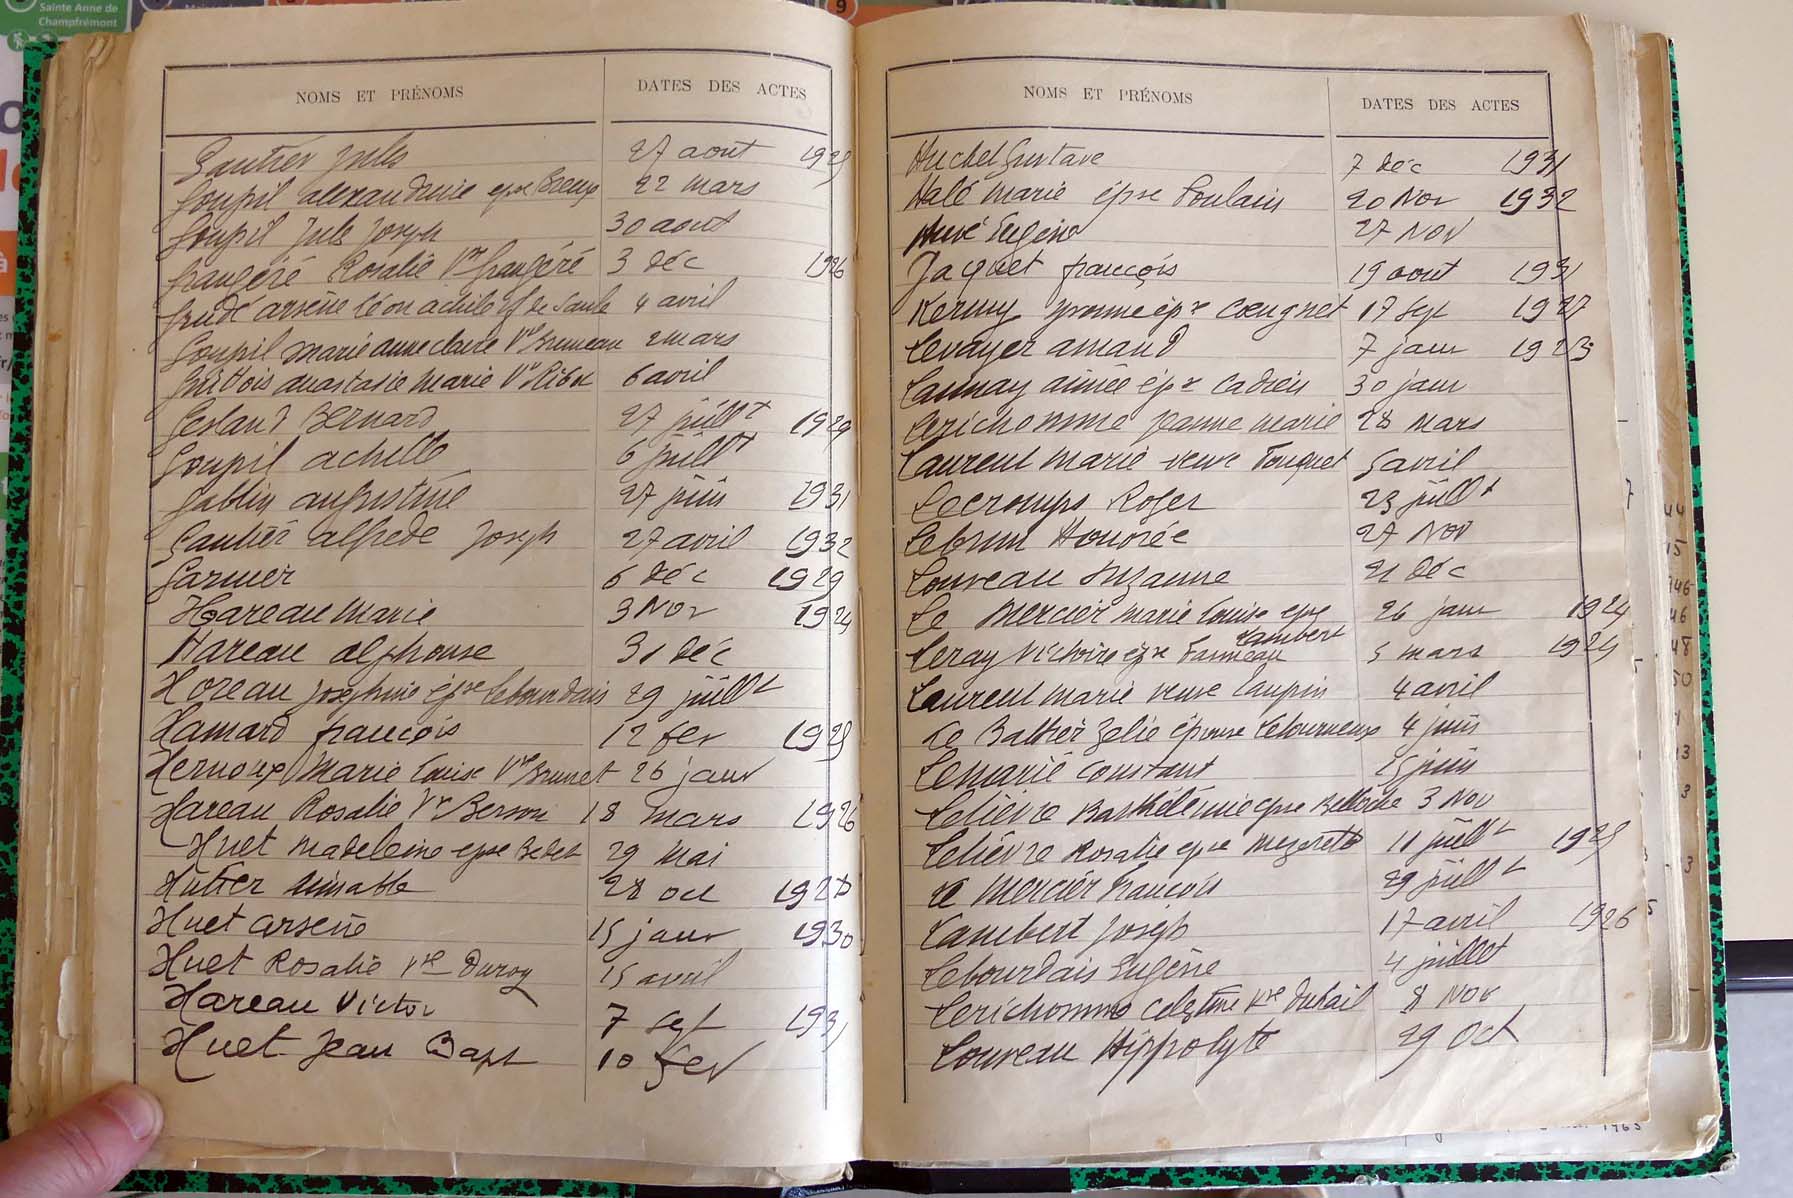 Sainte Anne de
Champfrémont
9
NOMS ET PRÉNOMS DATES DES ACTES
Gautier Jules 27 aout 1925
Goupil alexandrine epse Breux 22 mars
Goupil Jules Joseph 30 aout
Frangéré Rosalie Vve Frangéré 3 déc 1926
arsène Léon achile 4 avril
Goupil Marie anne claire Vve Bruneau 2 mars
anastasie Marie Vve 6 avril
Gesland Bernard 27 juillt 1929
Goupil achille 6 juillt
Gablin augustine 27 juin 1931
Gautier alfrede Joseph 27 avril 1932
Garnier 6 Déc 1929
Hareau Marie 3 Nov 1924
Hareau alphonse 31 déc
Horeau Josephine épse Lebourdais 29 juillt
Hamard françois 12 fev 1925
Hernoux Marie Louise Vve Brunet 26 janv
Hareau Rosalie Vve Berson 18 mars 1926
Huet Madeleine epse Bedet 29 Mai
Hutier aimable 28 oct
Huet arsene 15 janv 1930
Huet Rosalie Vve Duroy 15 avril
Hareau Victor 7 Sept 1931
Huet Jean Bapt 10 fev
NOMS ET PRÉNOMS DATES DES ACTES
Huchet Gustave 7 Déc 1931
Halé Marie épse Poulain 20 Nov 1932
Huvé Eugène 27 Nov
Jaquet françois 19 aout 1931
yvonne épse Coeugnet 17 Sept 1927
Levayer amand 7 janv 1923
Launay aimée épse Cadieu 30 janv
Lerichomme Jeanne Marie 28 Mars
Laurent Marie veuve Fouquet 5 avril
Lecromps Roger 23 juillt
Lebrun Honorée 27 Nov
Louveau Suzanne 21 Déc
Le Mercier Marie Louise epse 26 janv 1924
Lambert
Leray Victoire epse 5 mars
Laurent Marie veuve Laupin 4 avril
Le Balhier Zelie épouse Letourneux 4 juin
Lemarié Constant 25 juin
Lelièvre Barthélémie epse Belloche 3 Nov
Lelièvre Rosalie epse Mezerette 11 juillt 1925
Le Mercier François 29 juillt
Lambert Joseph 17 avril 1926
Lebourdais Eugène 4 juillet
Lerichomme Celestine Vve Dutail 8 Nov
Louveau Hippolyte 29 Oct